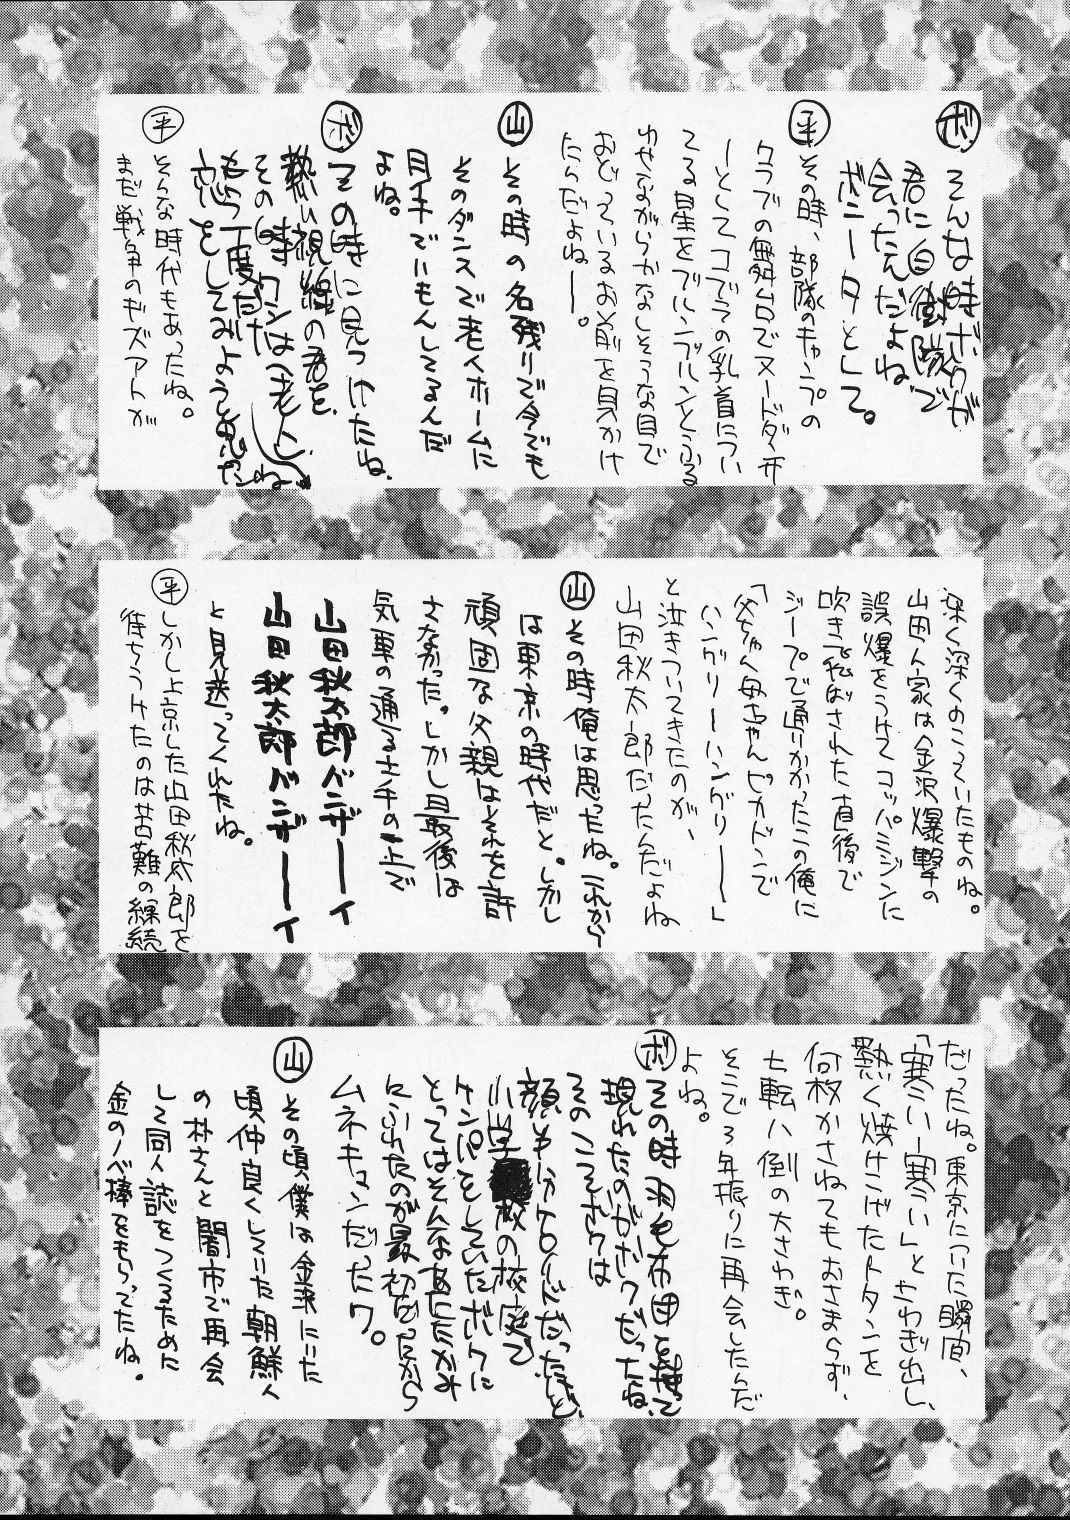 ボ そんな時ボクが
君に自衛隊で
会ったんだよね
ボニータとして。
平 その時、部隊のキャンプの
クラブの舞台でヌードダンサ
ーとしてコブラの乳首につい
てる星をブルンブルンとふる
わせながらかなしそうな目で
おどっているお前を見かけ
たんだよねー。
山 その時の名残りで今でも
そのダンスで老人ホームに
目手でいもんしてるんだ
よね。
ボ その時に見つけたね、
熱い視線の君を、
その時ワシは
その
もう一度だけ
恋をしてみようと思った
平 そんな時代もあったね。
まだ戦争のキズアトが
深く深くのこっていたものね。
山田ん家は金沢爆撃の
誤爆をうけてコッパミジンに
吹きて飛ばされた直後で
ジープで通りかかったこの俺に
「父ちゃん母ちゃんピカドンで
ハングリーハングリー──」
と泣きついてきたのが、
山田秋太郎だったんだよね
山 その時俺は思ったね。これから
は東京の時代だと。しかし
頑固な父親はそれを許
さなかった。しかし最後は
気車の通る土手の上で
山田秋太郎バンザーーイ
山田秋太郎バンザーーイ
と見送ってくれたね。
平 しかし上京した山田秋太郎を
待ちうけたのは苦難の継続
だったね。東京につた瞬間、
「寒い寒い」とさわぎ出し、
熱く焼けこげたトタンを
何枚かさねてもおさまらず、
七転八倒の大さわぎ。
そこで3年振りに再会したんだ
よね。
ボ その時羽毛布団を持って
現れたのがボクだったね、
そのころボクは
顔もハケロイドだったけど、
小学校の校庭で
ケンパをしていたボクに
とってはそんなあたたかみ
にふれたのが最初だったから
ムネキュンだったワ。
山 その頃、僕は金沢にいた
頃仲良くしていた朝鮮人
の朴さんと闇市で再会
して同人誌をつくるために
金のノベ棒をもらってたね。